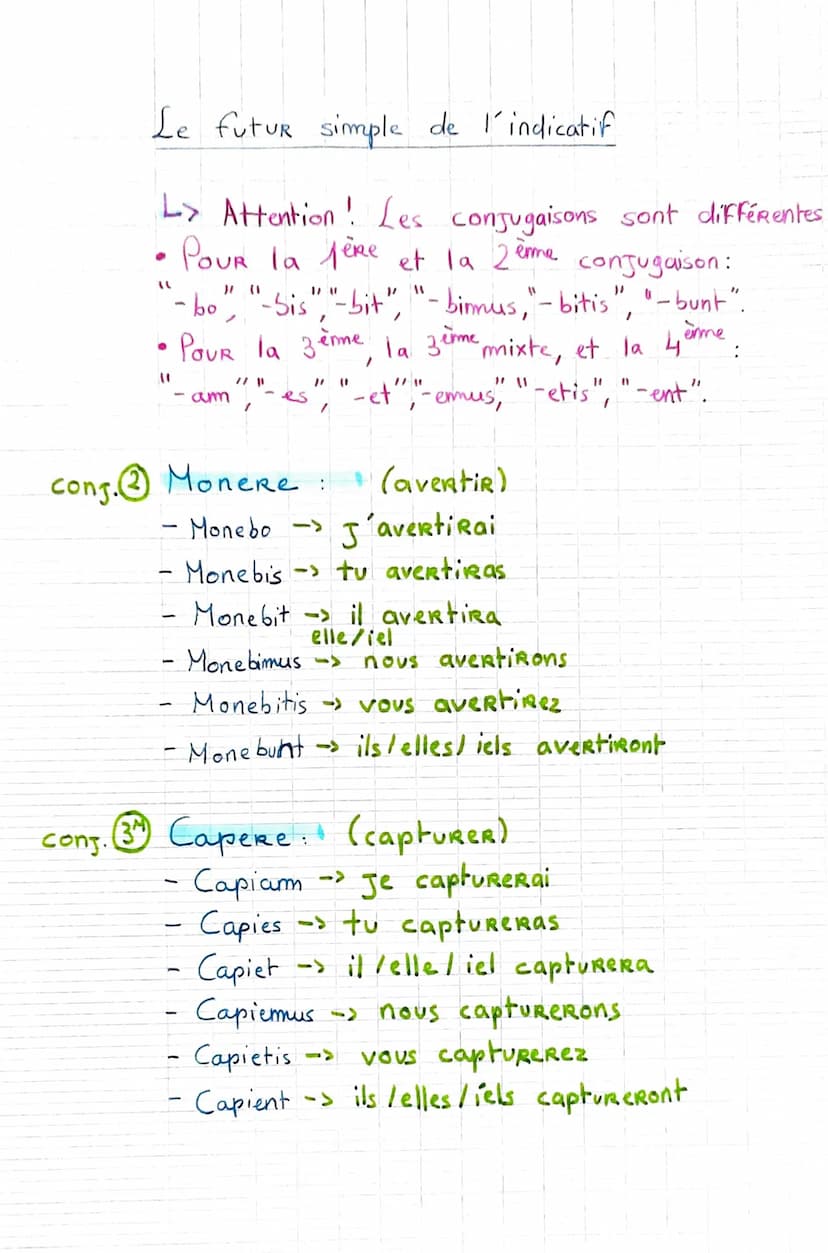 Le futur simple de l'indicatif
↳ Attention! Les conjugaisons sont différentes
• Pour la 1ère et la 2ème conjugaison:
"-bo", "-bis", "-bit", "-bimus, "-bitis", "-bunt".
• Pour la 3ème, la 3ème mixte, et la 4ème :
"-am", "-es", "-et", "-emus", "-etis", "-ent".
conj. ② Monere : (avertir)
- Monebo -> j'avertirai
- Monebis -> tu avertiras
- Monebit -> il avertira
elle/iel
- Monebimus -> nous avertirons
- Monebitis -> vous avertirez
- Monebunt -> ils/elles/iels avertiront
conj. 3M Capere : (capturer)
- Capiam -> je capturerai
- Capies -> tu captureras
- Capiet -> il/elle/iel capturera
- Capiemus -> nous capturerons
- Capietis -> vous capturerez
- Capient -> ils/elles/iels captureront